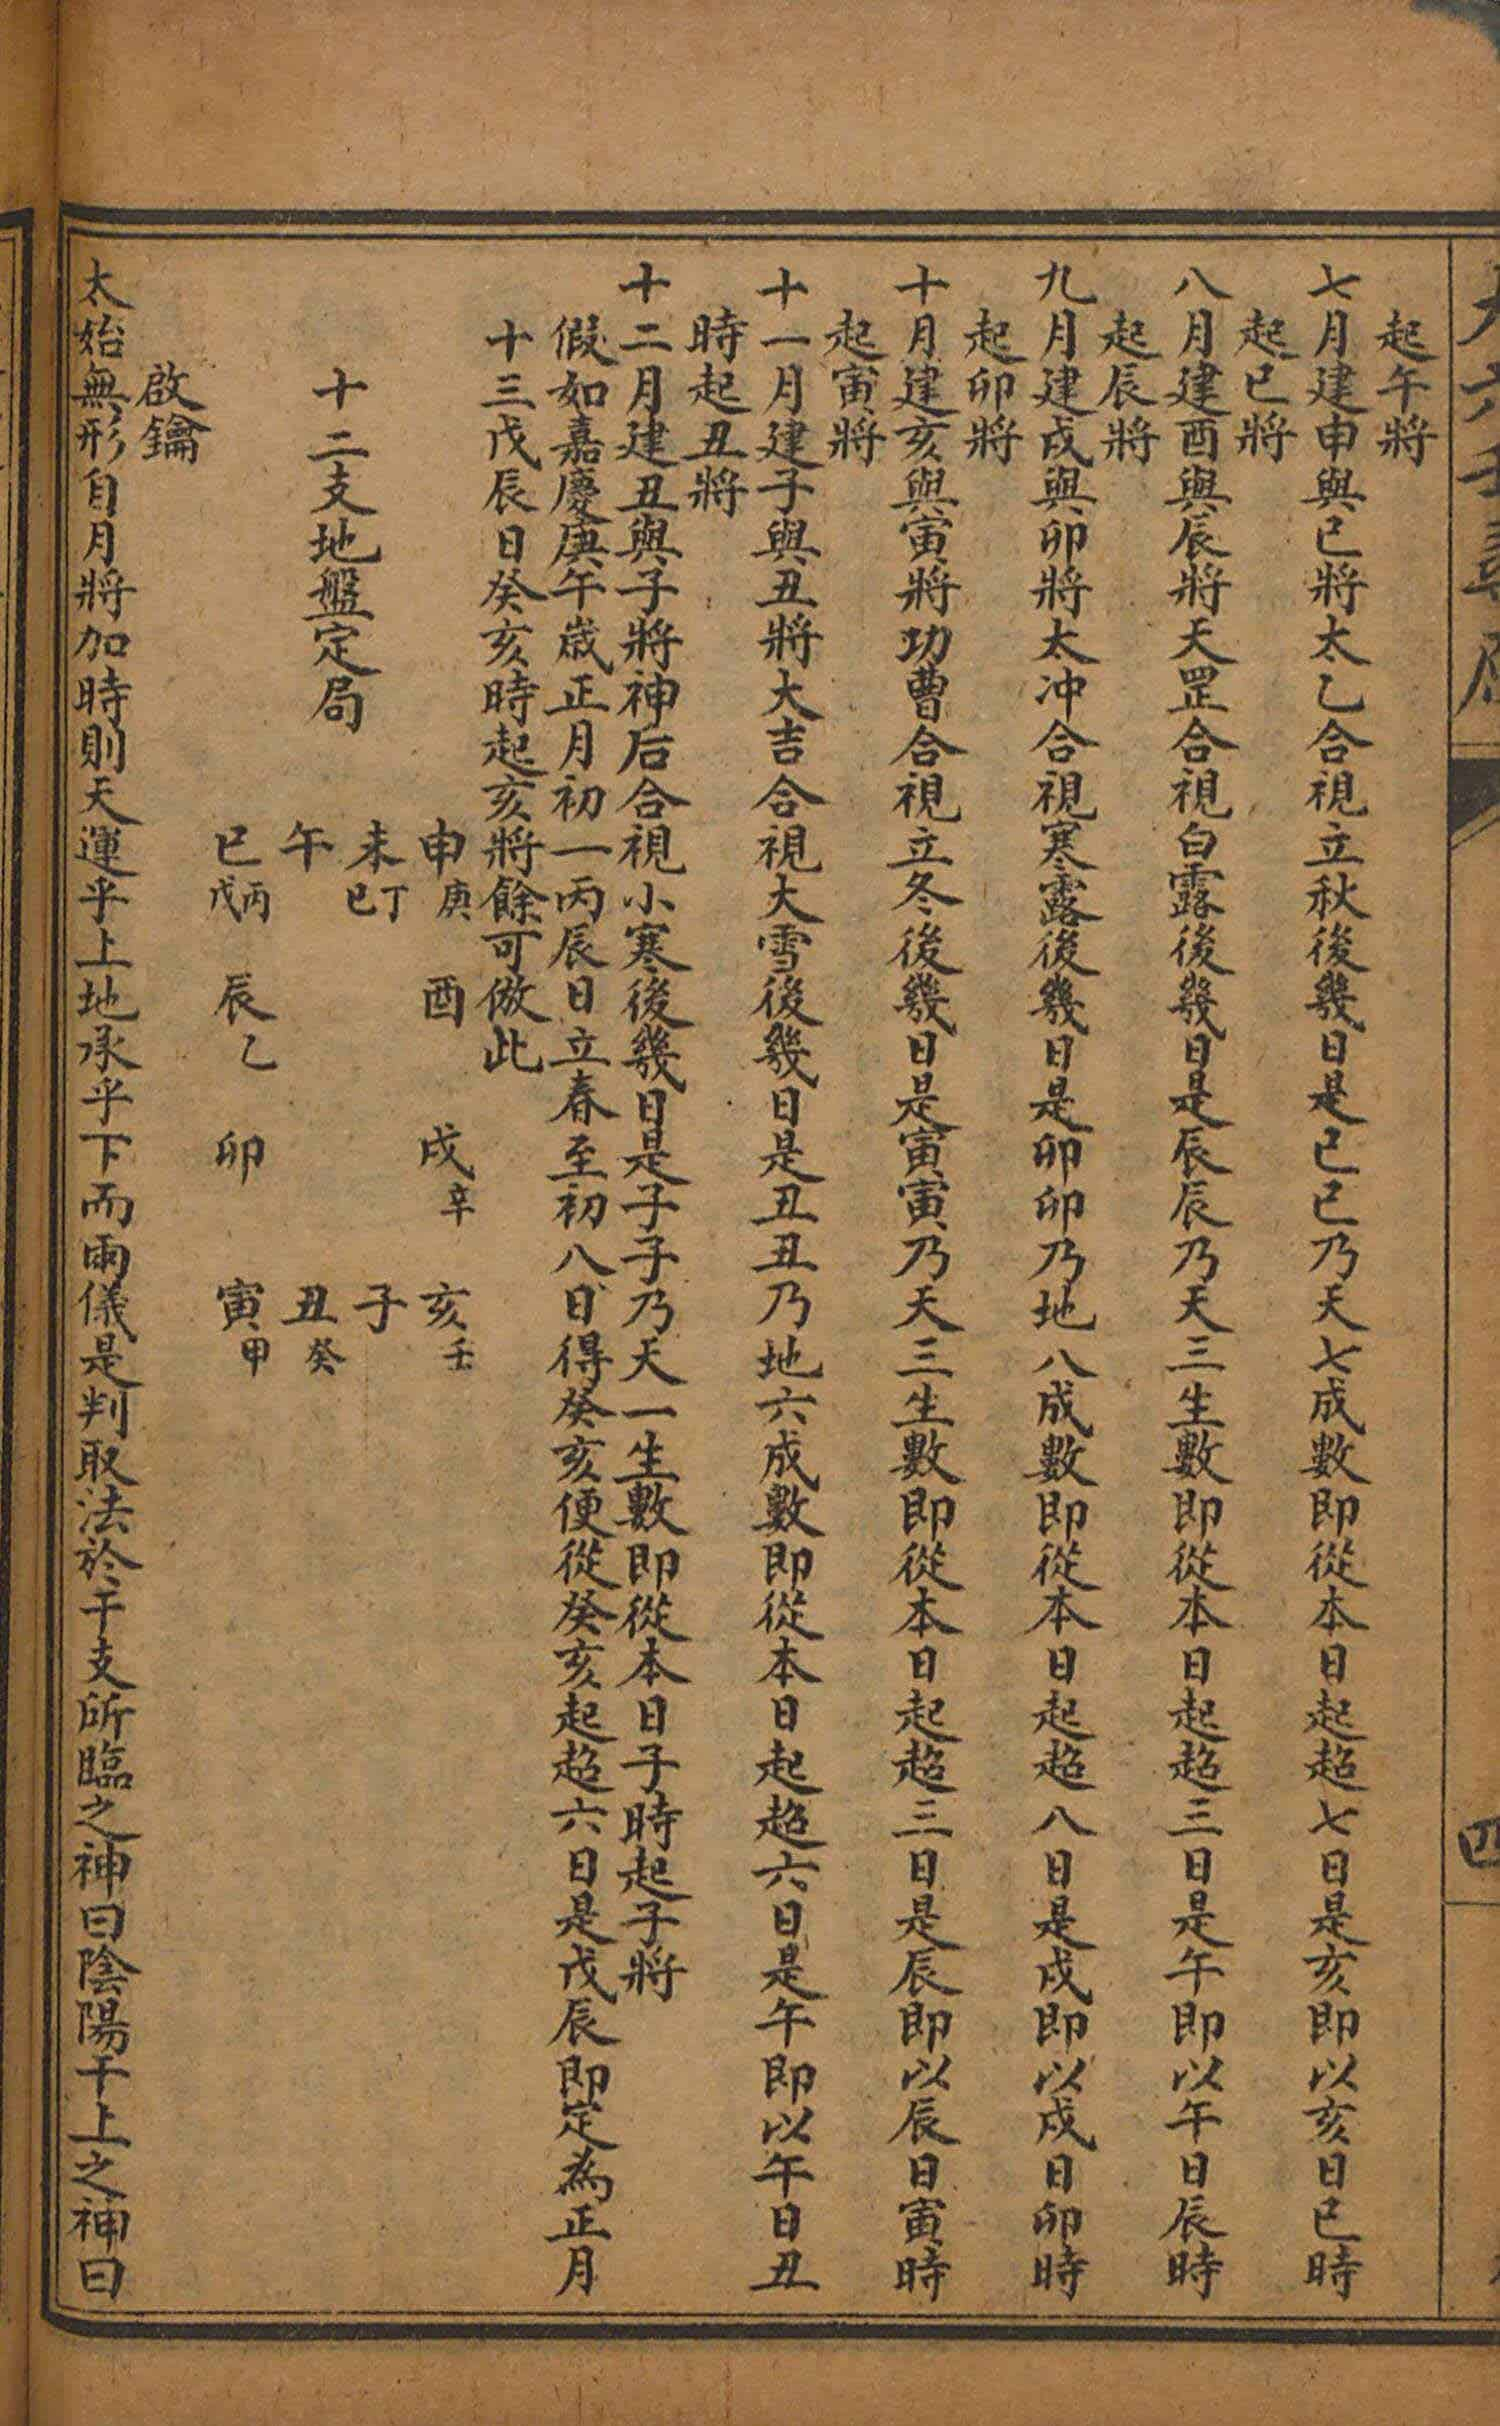 起午將
七月建申與巳將太乙合視立秋後幾日是巳巳乃天七成數即從本日起超七日是亥即以亥日巳時
起巳將
八月建酉與辰將天罡合視白露後幾日是辰辰乃天三生數即從本日起超三日是午即以午日辰時
起辰將
九月建戌與卯將太冲合視寒露後幾日是卯卯乃地八成數即從本日起超八日是戌即以戌日卯時
起卯將
十月建亥與寅將功曹合視立冬後幾日是寅寅乃天三生數即從本日起超三日是辰即以辰日寅時
起寅將
十一月建子與丑將大吉合視大雪後幾日是丑丑乃地六成數即從本日起超六日是午即以午日丑
時起丑將
十二月建丑與子將神后合視小寒後幾日是子子乃天一生數即從本日子時起子將
假如嘉慶庚午歲正月初一丙辰日立春至初八日得癸亥便從癸亥起超六日是戊辰即定為正月
十三戊辰日癸亥時起亥將餘可倣此
申庚 酉 戌辛 亥壬
未丁巳 子
十二支地盤定局
午 丑癸
巳丙戊 辰乙 卯 寅甲
啟鑰
太始無形自月將加時則天運乎上地承乎下而兩儀是判取法於干支所臨之神曰陰陽干上之神曰
四